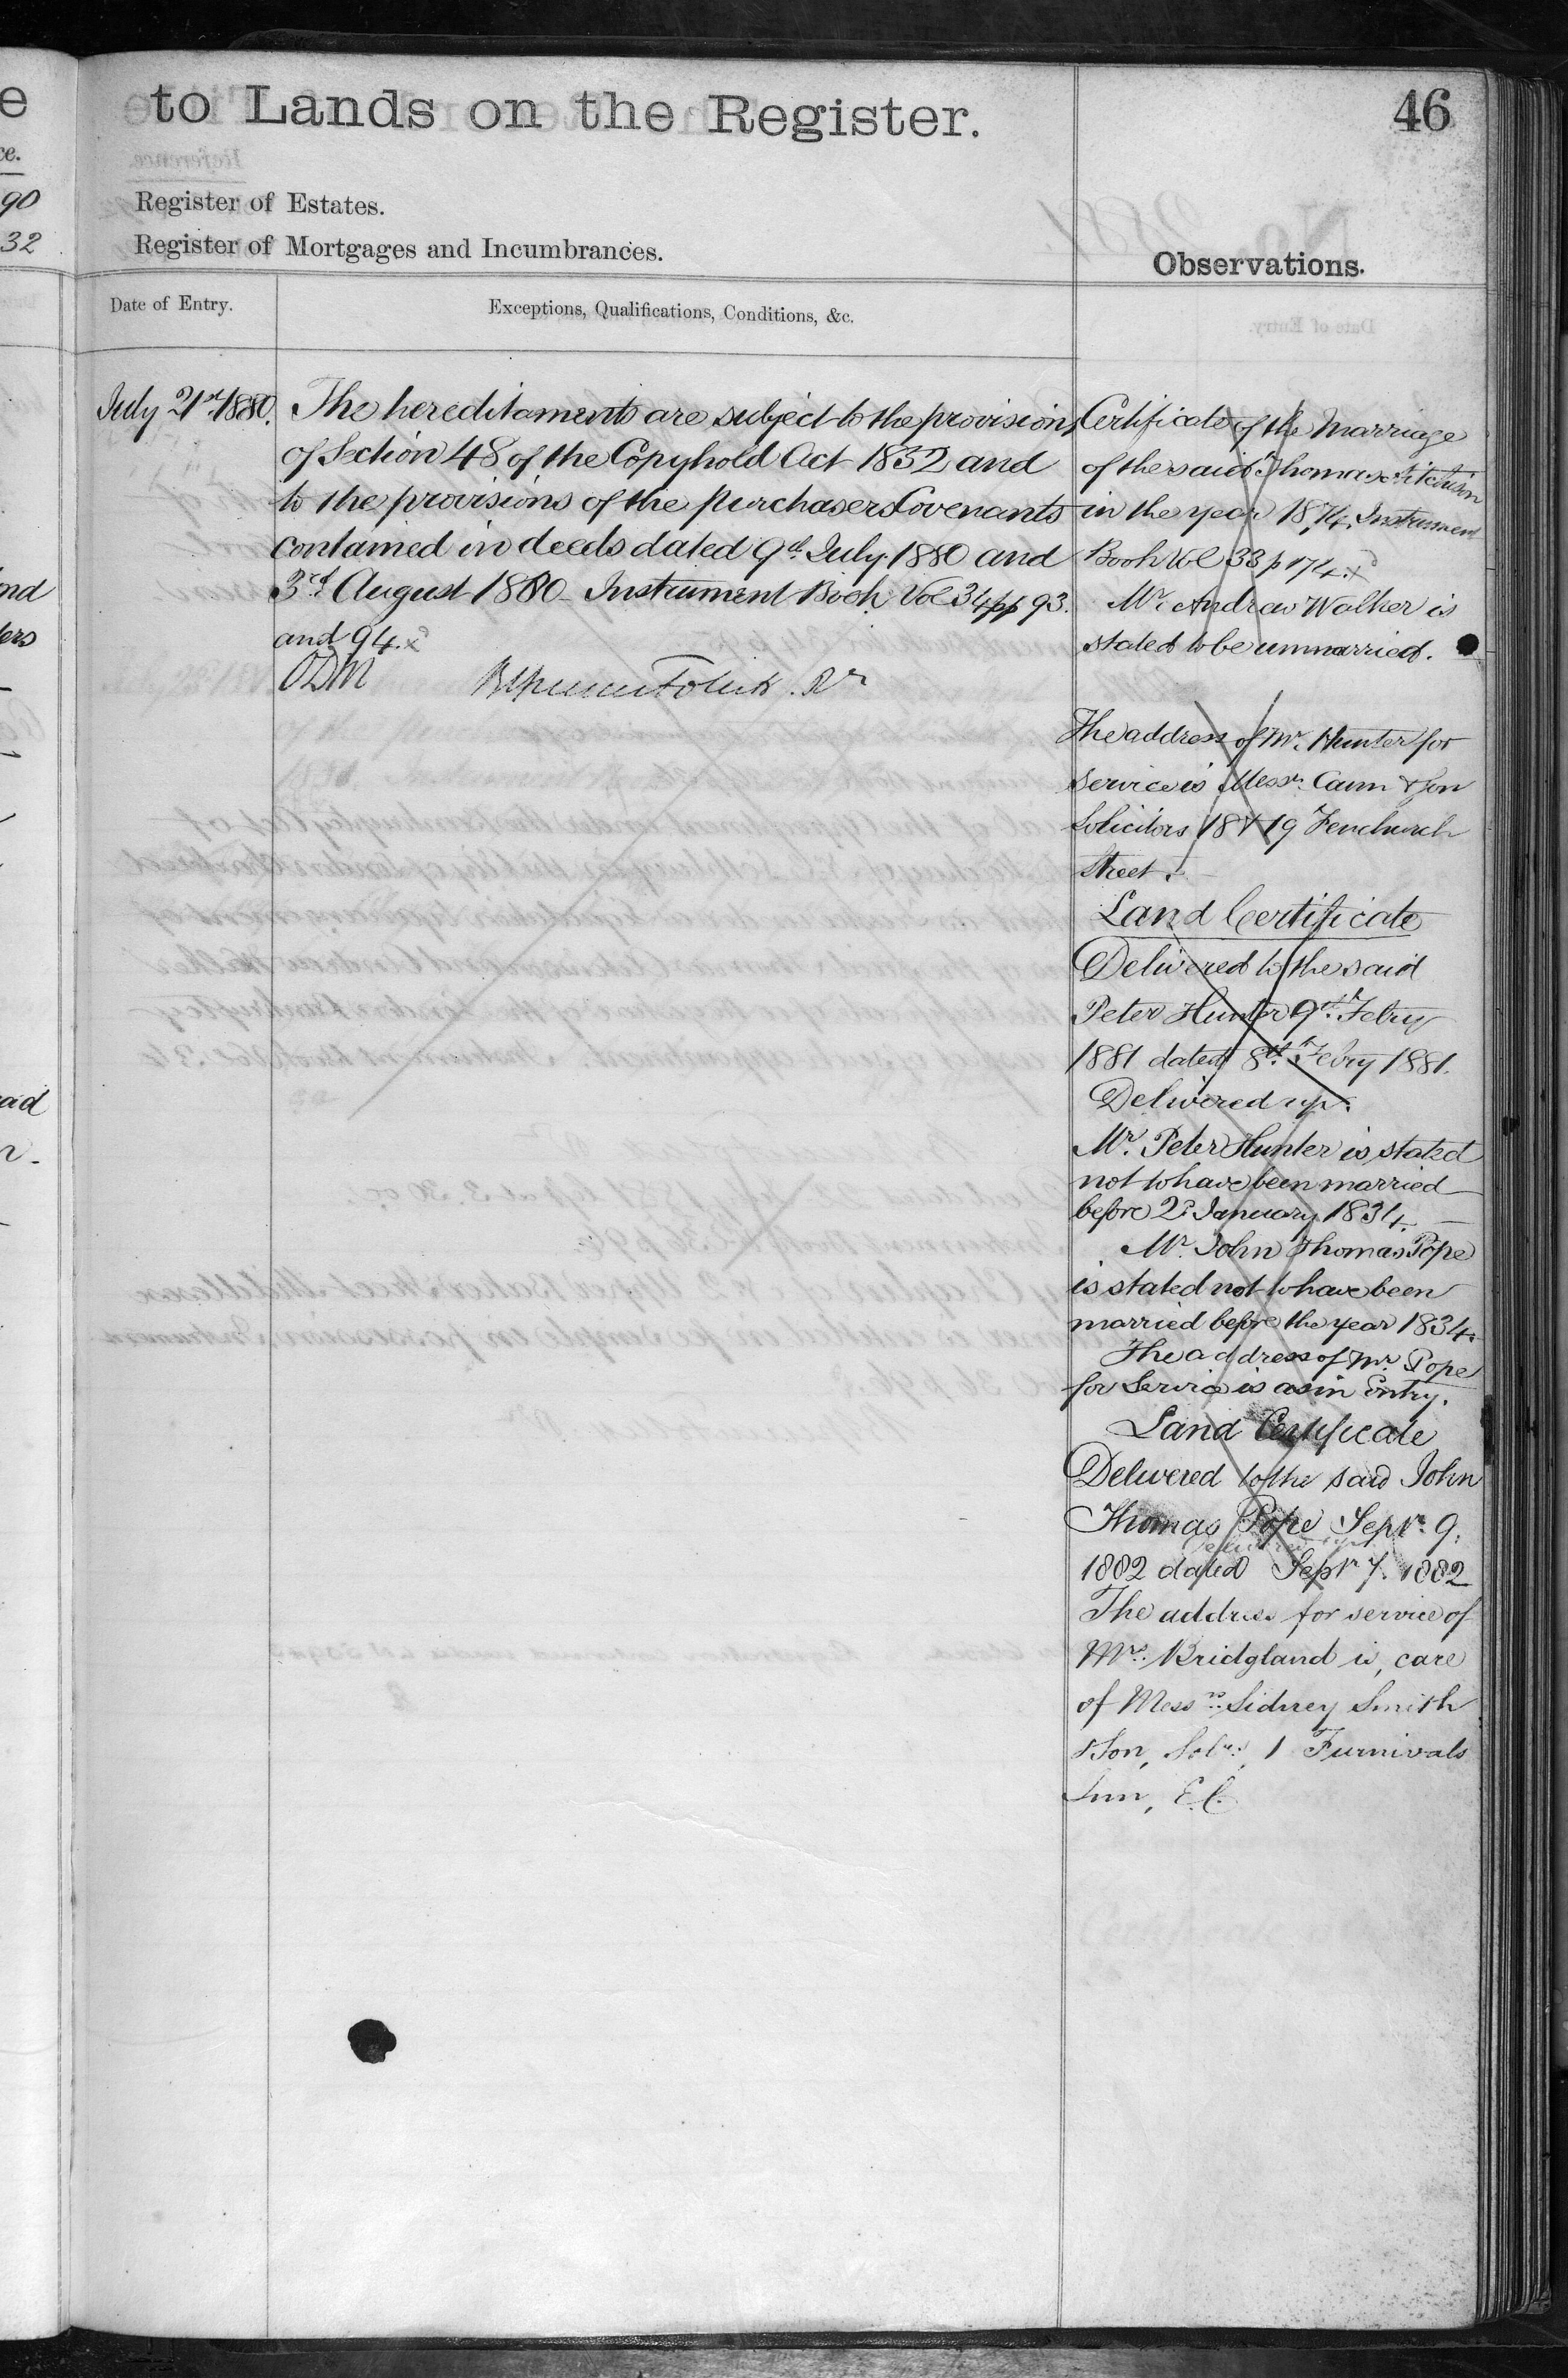 e
ce.
90
32
nd
ers
aid
to Lands on the Register.
46
Register of Estates.
Register of Mortgages and Incumbrances.
Observations.
Date of Entry.
Exceptions, Qualifications, Conditions, &c.
July 21st 1880.
The hereditaments are subject to the provisions
of Section 48 of the Copyhold Act 1852 and
to the provisions of the purchasers Covenants
contained in deeds dated 9th July 1880 and
3rd August 1880 Instrument Book Vol 34 pp 93.
and 94.
ODM
Certificate of the Marriage
of the said Thomas Aitchison
in the year 1874. Instrument
Book Vol 33 p 174.
Mr. Andrew Walker is
stated to be unmarried.
The address of Mr. Hunter for
service is Messrs. Cann & Son
Solicitors 18 & 19 Fenchurch
Street.
Land Certificate
Delivered to the said
Peter Hunter 9th Febry
1881 dated 8th Febry 1881.
Delivered up.
Mr. Peter Hunter is stated
not to have been married
before 2d January 1834.
Mr. John Thomas Pope
is stated not to have been
married before the year 1834.
The address of Mr. Pope
for Service is as in Entry.
Land Certificate
Delivered to the said John
Thomas Pope Septr. 9.
1882 dated Septr 7. 1882
The address for service of
Mrs. Bridgland is, care
of Messrs. Sidney Smith
& Son, Solrs., 1 Furnivals
Inn, E.C.